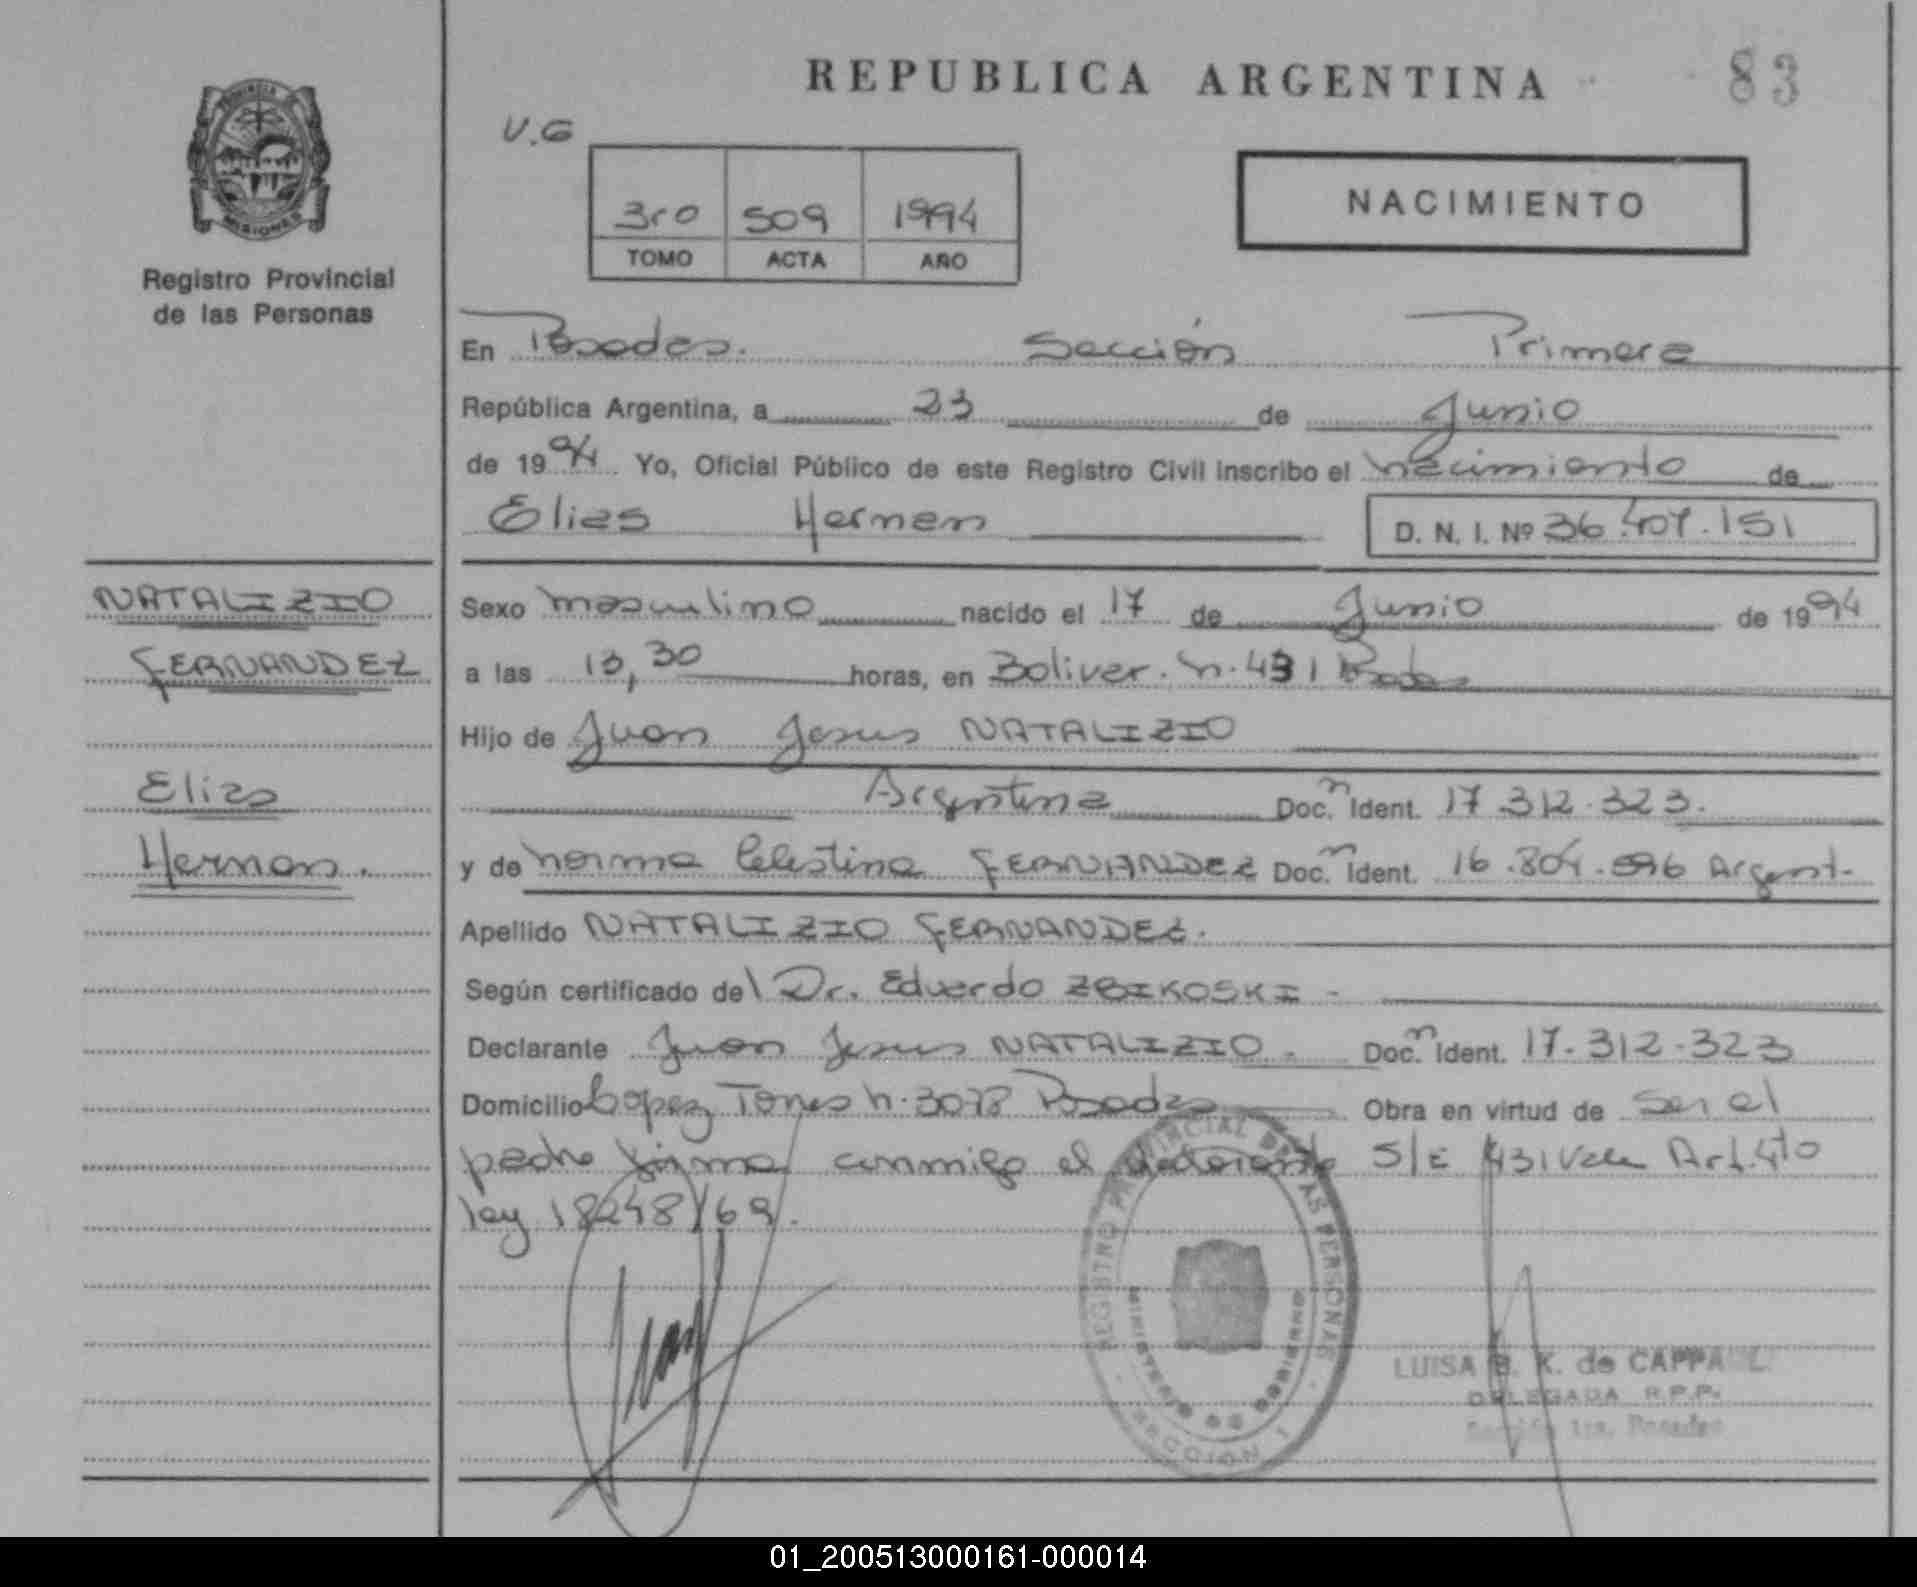 REPUBLICA ARGENTINA
83
V.G
3ro 509 1994
TOMO ACTA AÑO
NACIMIENTO
PROVINCIA DE
MISIONES
Registro Provincial
de las Personas
En Posadas. Sección Primera
República Argentina, a 23 de Junio
de 1994 Yo, Oficial Público de este Registro Civil inscribo el nacimiento de
Elias Hernan
D. N. I. Nº 36.407.151
NATALIZIO
FERNANDEZ
Elias
Hernan.
Sexo masculino nacido el 17 de Junio de 1994
a las 13,30 horas, en Bolivar. n. 431 Posadas
Hijo de Juan Jesus NATALIZIO
Argentina Doc.n Ident. 17.312.323.
y de norma Celestina FERNANDEZ Doc.n Ident. 16.804.596 Argent.
Apellido NATALIZIO FERNANDEZ.
Según certificado del Dr. Eduardo ZBIKOSKI -
Declarante Juan Jesus NATALIZIO. Doc.n Ident. 17.312.323
Domicilio Lopez Torres n. 3078 Posadas Obra en virtud de ser el
padre firma conmigo el declarante S/E 431 Vale Art. 4to
ley 18248/69.
REGISTRO PROVINCIAL DE LAS PERSONAS
MINISTERIO DE GOBIERNO
SECCION 1
LUISA B. K. de
DELEGADA R.P.P.
Sección 1ra. Posadas
01_200513000161-000014